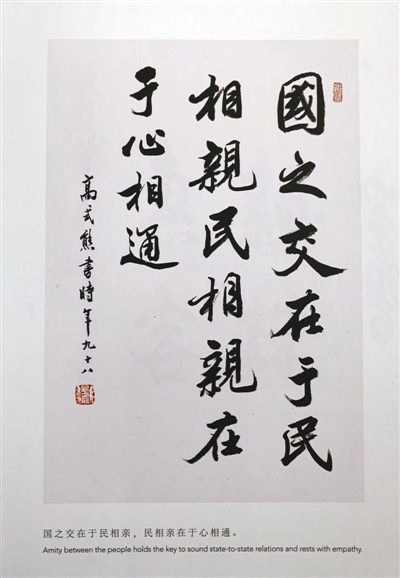 國之交在于民
相親民相親在
于心相通
高式熊書時年九十八
国之交在于民相亲，民相亲在于心相通。
Amity between the people holds the key to sound state-to-state relations and rests with empathy.